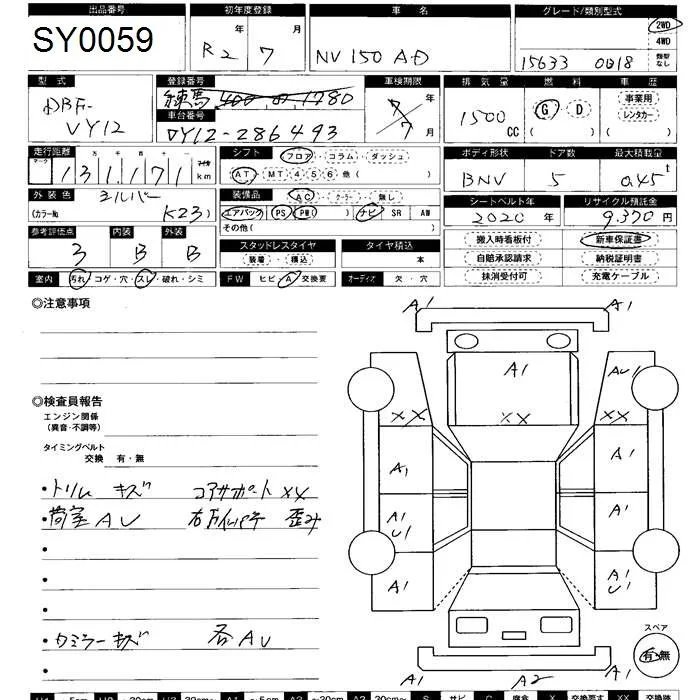 出品番号 初年度登録 車名 グレード/類別型式
SY0059 R2年 7月 NV150 AD 15633 0018 2WD 4WD 類型なし
型式 登録番号 車検期限 排気量 燃料 車歴
DBF-VY12 練馬 400 1780 7年 7月 1500CC G・D 事業用 レンタカー
車台番号
VY12-286493
走行距離 シフト フロア・コラム・ダッシュ ボディ形状 ドア数 最大積載量
マーク 十万千百十一 マイル
131,171km AT・MT・4・5・6・他( ) BNV 5 0.45t
外装色 シルバー 装備品 AC・クーラー・無し シートベルト年 リサイクル預託金
(カラーNo. K23) エアバック・PS・PW( )・ナビ・SR・AW 2020年 9,370円
その他( )
参考評価点 内装 外装 スタッドレスタイヤ タイヤ積込 搬入時看板付 新車保証書
3 B B 装着・積込 本 自賠承認請求 納税証明書
抹消受付可 充電ケーブル
室内 汚れ・コゲ・穴・スレ・破れ・シミ FW ヒビ・A・交換要 オーディオ 欠・穴
◎注意事項
A1 A1
A1 AU1
◎検査員報告
エンジン関係
(異音・不調等)
XX XX XX
タイミングベルト
交換 有・無
A1 A1
・トリム キズ コアサポート XX
・荷室 AU 歪み
A1 A1
U1
A1 A1
U1
・キズ 各AU
スペア
有・無
A1 A2 A1